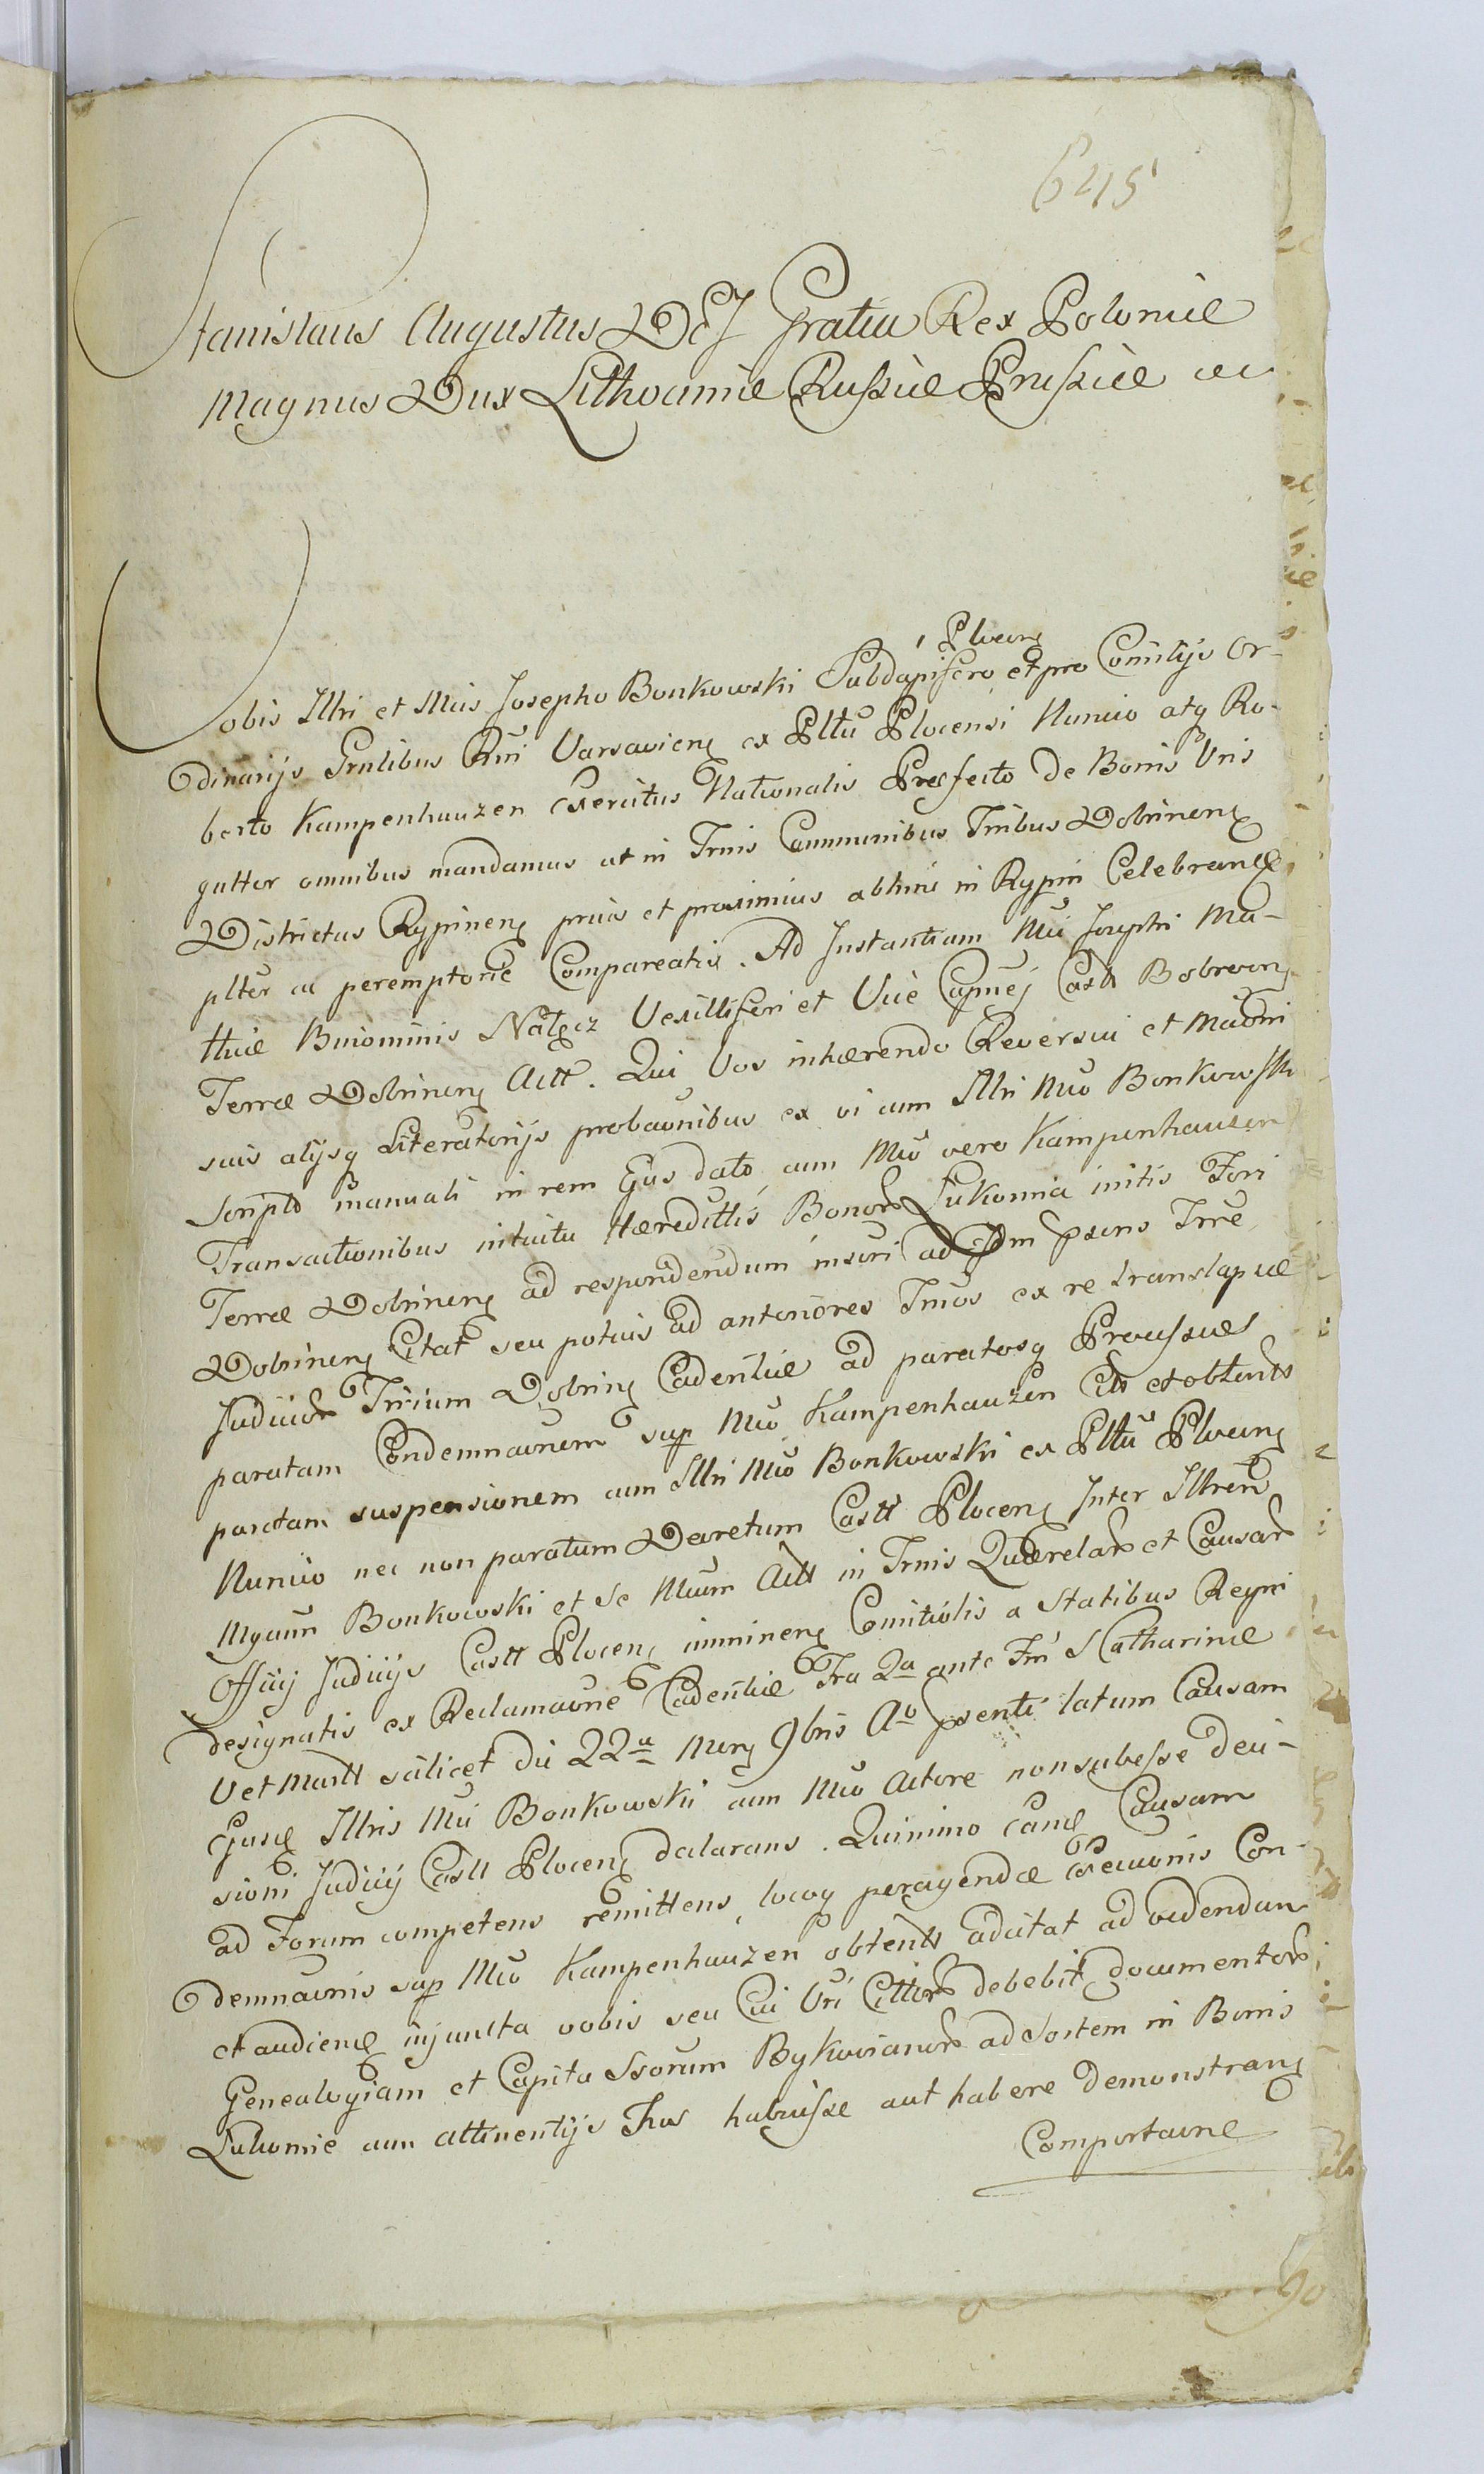 645
Stanislaus Augustus DEJ Gratia Rex Poloniæ
Magnus Dux Lithvaniæ Russiæ Prussiæ etc
Plocens
Vobis Illri et Mcis Josepho Bonkowski Subdapifero et pro Comitijs Or-
dinarijs Gnlibus Rni Varsaviens ex Plttu Plocensi Nuncio atq Ro-
berto Kampenhauzen Exercitus Nationalis Præfecto De Bonis Vris
gulter omnibus mandamus ut in Trmis Communibus Tribus Dobrinens
Districtus Rypinens prius et proximius abhinc in Rypin Celebrand
plter ac peremptorie Compareatis. Ad Instantiam Mci Josephi Ma-
thiæ Binominis Nałęcz Vexilliferi et Vice Capnej Castr Bobrovn
Terræ Dobrinens Actt. Qui Vos inhærendo Reversui et Madni
suis alijsq Literatorijs probaonibus ex vi cum Illri Mco Bonkowski
Scripto manuali in rem Ejus dato, cum Mco vero Kampenhauzen
Transactionibus intuitu Hæredittis Bonor Lukomia initis Fori
Terræ Dobrinens ad respondendum inseri ad Jdm psens Trre
Dobrinens Citat seu potius ad anteriores Trnos ex re translapsæ
Judicior Trrium Dobrins Cadentiæ ad paratosq Processus
paratam Condemnaonem sup Mco Kampenhauzen Cito et obtento
paratam suspensionem cum Illri Mco Bonkowski ex Plttu Plocens
Nuncio nec non paratum Decretum Castr Plocens Inter Illrem
Mgcum Bonkowski et Se Mcum Actt in Trmis Quærelar et Causar
Officij Judicijs Castr Plocens imminens Comitiolis a Statibus Regni
designatis ex Reclamaone Cadentiæ Fra 2a ante Fm S Catharinæ
V et Martt scilicet die 22a Mens 9bris Ao psenti latum Causam
Ejusq Illris Mci Bonkowski cum Mco Actore non subesse deci-
sioni Judicij Castr Plocens declarans. Quinimo eand Causam
ad Forum competens remittens, locoq peragendæ Execuonis Con-
demnaonis sup Mco Kampenhauzen obtento adcitat ad videndum
et audiend injuncta vobis seu Cui Vri Cittor debebit documentor
Genealogiam et Capita Ssorum Bykovianor ad Sortem in Bonis
Lukomie cum attinentijs Jus habuisse aut habere Demonstrans
Comportaone